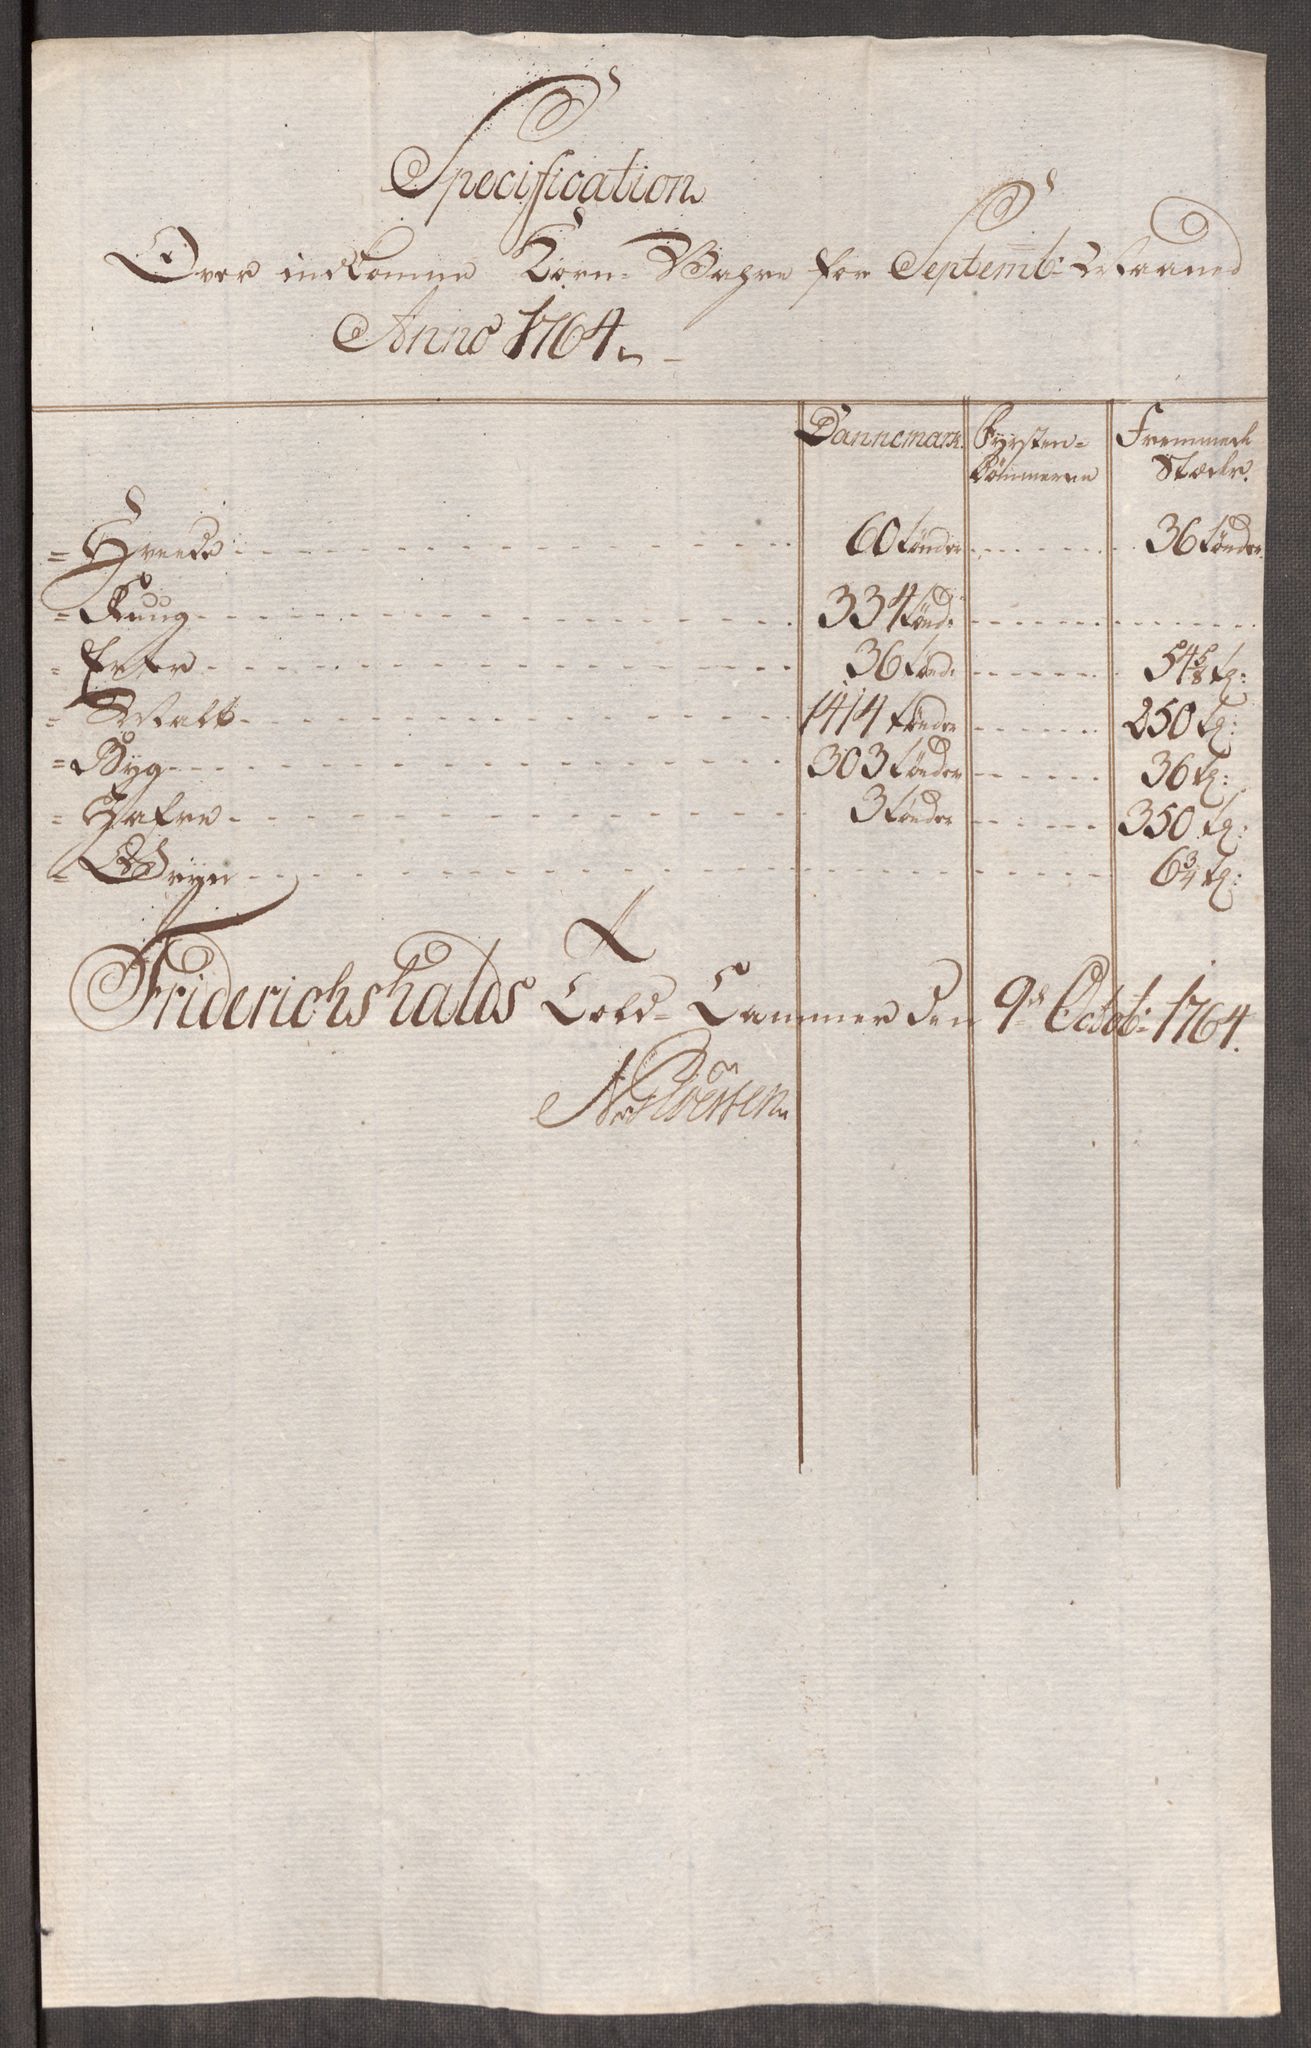 Specification
Over indkomne Korn-Vahre for Septemb: Maaned
Anno 1764
Dannemark. Fyrsten= Fremmede
dömmerne Stæder.
= Hvede 60 tönder 36 tönder.
= Ruug 334 tönd:
= Erter 36 tönd: 54 5/8 tq:
= Malt 1414 tönder 250 tq:
= Byg 303 tönder 36 tq:
= Hafre 3 tönder 350 tq:
= Gryn 6 3/4 tq:
Friderichshalds Told-Cammer den 9de Octob: 1764.